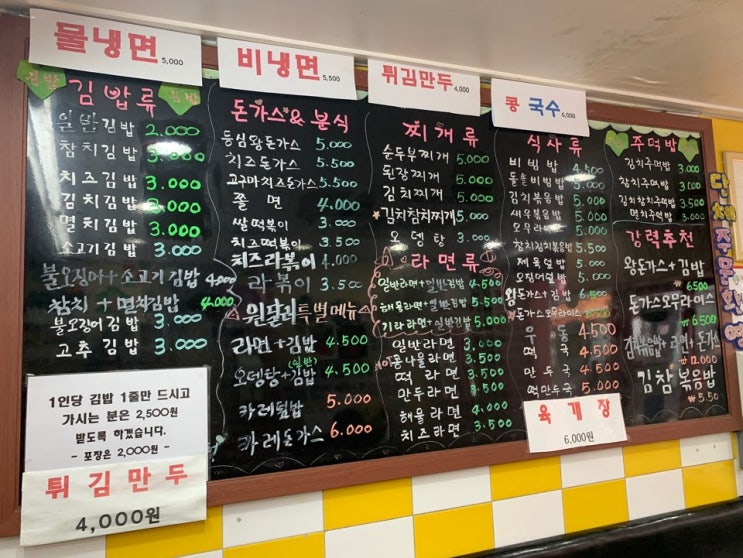 물냉면 5,000
비냉면 5,500
튀김만두 4,000
콩 국수 6,000
김밥 김밥류 김밥
일반김밥 2.000
참치김밥 3.000
치즈김밥 3.000
김치김밥 3.000
멸치김밥 3.000
소고기김밥 3.000
불오징어+소고기김밥 4.000
참치+멸치김밥 4.000
불오징어김밥 3.000
고추김밥 3.000
1인당 김밥 1줄만 드시고
가시는 분은 2,500원
받도록 하겠습니다.
- 포장은 2,000원 -
튀김만두
4,000원
돈가스&분식
등심왕돈가스 5.000
치즈돈가스 5.500
고구마치즈돈가스 5.500
쫄면 4.000
쌀떡볶이 3.000
치즈떡볶이 3.500
치즈라볶이 4.000
라볶이 3.500
특별메뉴
라면+김밥 4.500
오뎅탕+김밥 (일반) 4.500
카레덮밥 5.000
카레돈가스 6.000
찌개류
순두부찌개 5.000
된장찌개 5.000
김치찌개 5.000
김치참치찌개 5.000
오뎅탕 3.000
라면류
일반라면+일반김밥 4.500
해물라면+일반김밥 5.500
기타라면+일반김밥 5.000
일반라면 3.000
콩나물라면 3.500
떡라면 3.500
만두라면 3.500
해물라면 4.000
치즈라면 3.500
식사류
비빔밥 4.500
돌솥비빔밥 5.000
김치볶음밥 5.000
새우볶음밥 5.000
오므라이스 5.000
참치김치볶음밥 5.500
제육덮밥 5.000
오징어덮밥 5.000
왕돈가스+김밥 6.500
돈가스오므라이스
우동 4.500
떡국 4.500
만두국 4.500
떡만두국 5.000
육개장
6,000원
주먹밥
김치주먹밥 3.000
참치주먹밥 3.000
김치참치주먹밥 3.500
멸치주먹밥 3.000
강력추천
왕돈가스+김밥
₩ 6500
돈가스오므라이스
₩ 6.500
김치볶음밥+라면+돈가스
김참볶음밥
₩ 5.50
단체주문환영